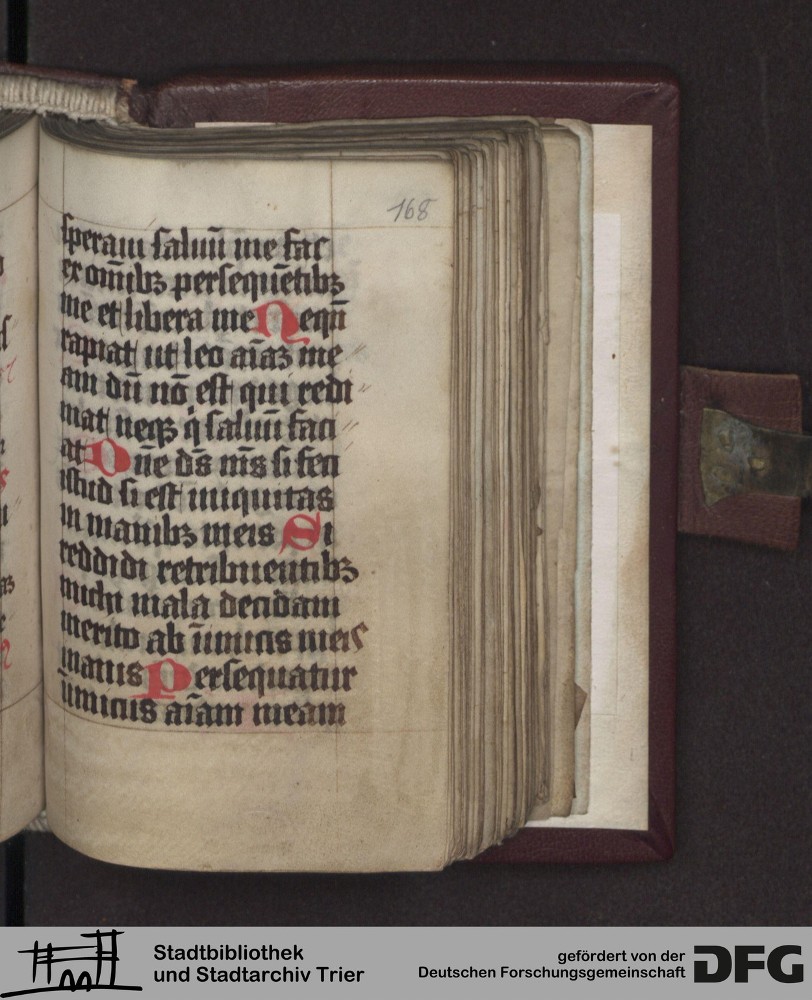 168
speram saluū me fac
ex om̄ibꝫ persequētibꝫ
me et libera me Nequn̄
rapiat ut leo aīaꝫ me
am dū nō est qui redi
mat neqꝫ q̇ saluū faci
at Dn̄e dꝰs mꝰs si feci
istud si est iniquitas
in manibꝫ meis Si
reddidi retribuentibꝫ
michi mala decidam
merito ab īimicis meis
inanis Persequatur
īimicus aīam meam
Stadtbibliothek
und Stadtarchiv Trier
gefördert von der
Deutschen Forschungsgemeinschaft
DFG